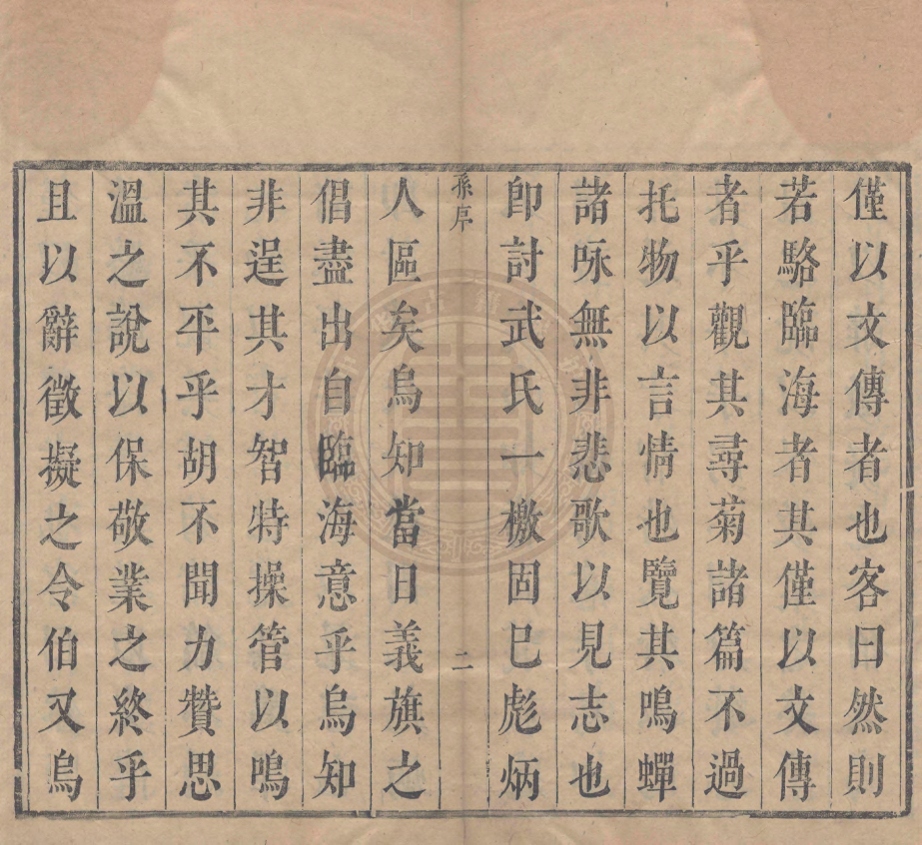 僅以文傳者也客曰然則
若駱臨海者其僅以文傳
者乎觀其尋菊諸篇不過
托物以言情也覽其鳴蟬
諸咏無非悲歌以見志也
卽討武氏一檄固已彪炳
孫序
二
人區矣烏知當日義旗之
倡盡出自臨海意乎烏知
非逞其才智特操管以鳴
其不平乎胡不聞力贊思
溫之說以保敬業之終乎
且以辭徵擬之令伯又烏